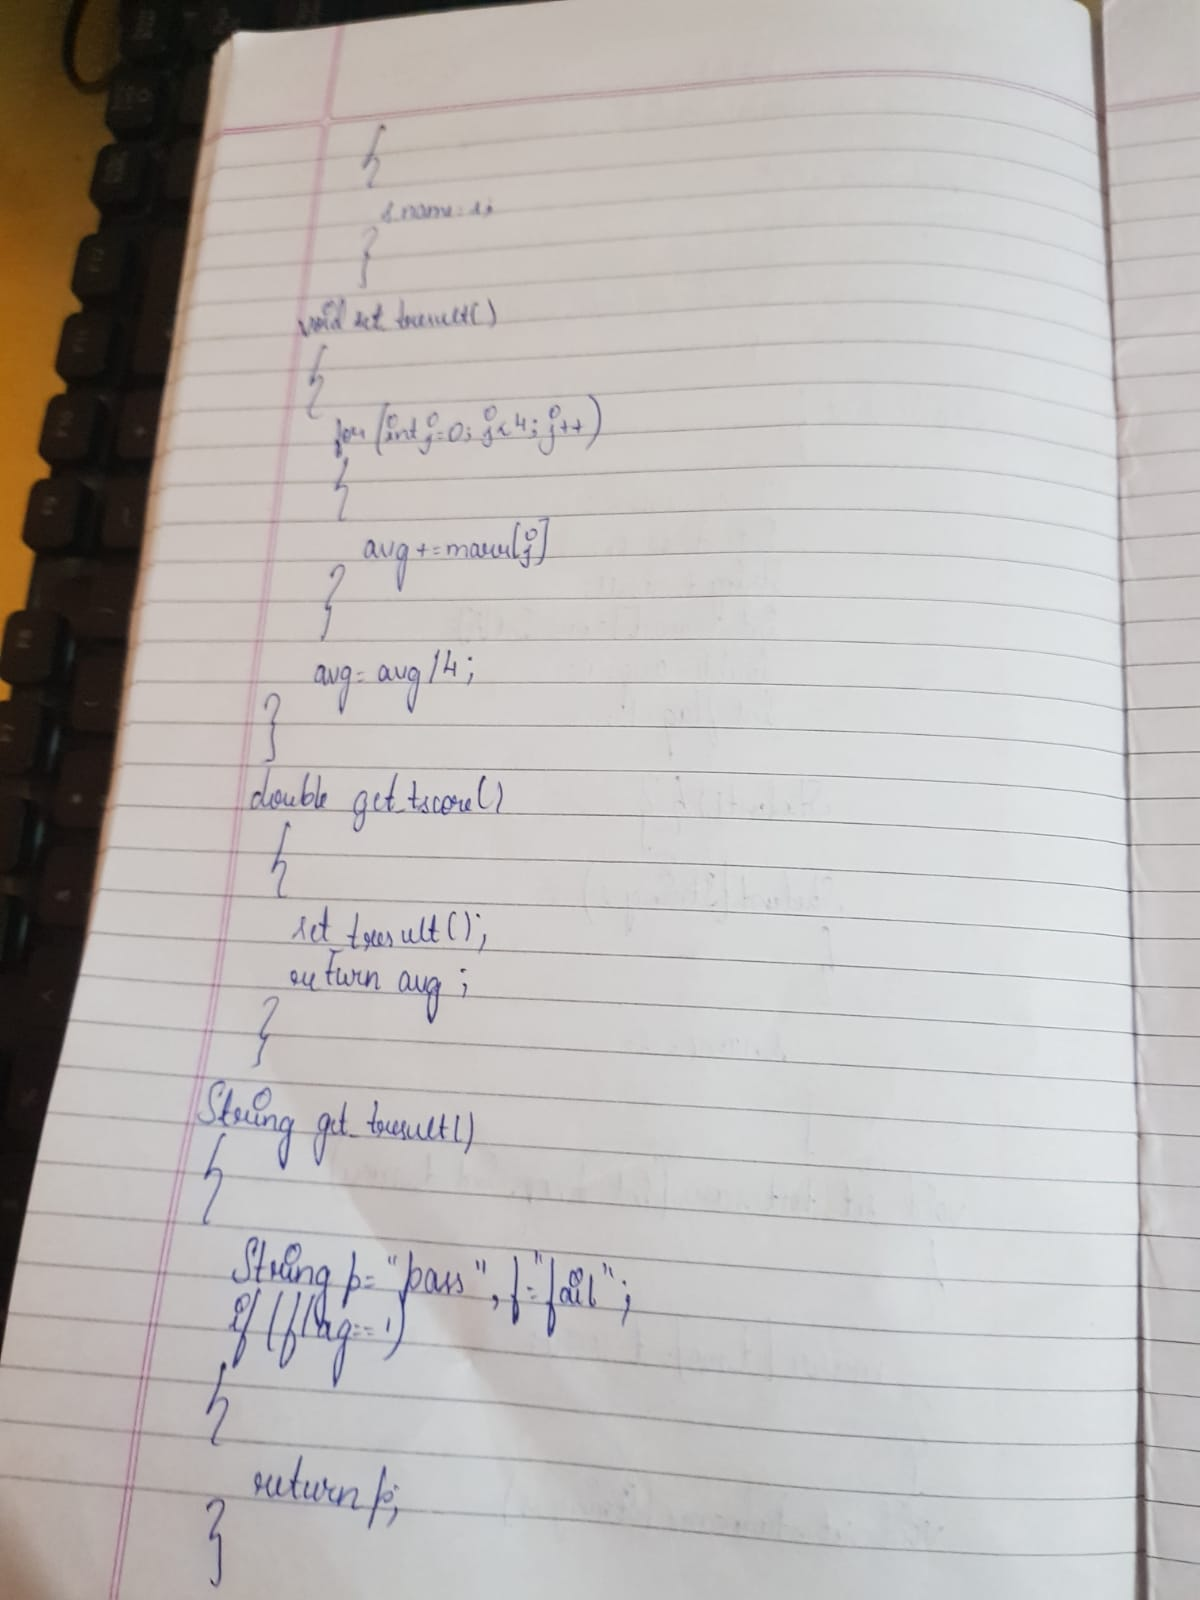 {
s_name=s;
}
void set_tresult()
{
for(int j=0; j<4; j++)
{
avg+=marks[j]
}
avg=avg/4;
}
double get_tscore()
{
set_tresult();
return avg;
}
String get_tresult()
{
String p="pass", f="fail";
if(flag==1)
{
return p;
}